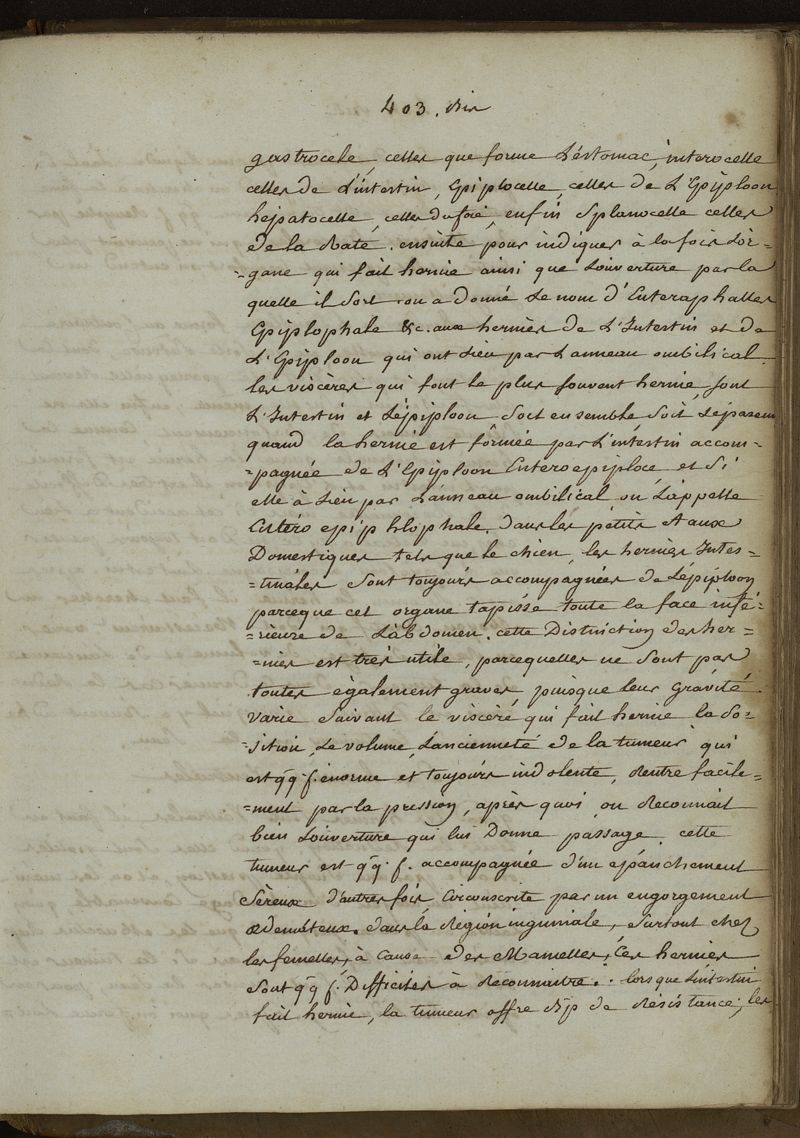 403. bis
gastrocele, celles que forme L'éstomac, interocelle
celles de L'intestin, Epiplocelle, celles de L'Epiploon
hépatocelle, celles du foié, enfin Splanocelle celles
de la Rate. ensuite pour indiquer à la fois L'or=
=gane qui fait hernie ainsi que Louverture par la
quelle il Sort on a donné Le nom d'Enteraphalles
Epiplophale &c. aux hernies de L'Intestin et de
L'Epiploon qui ont Lieu par Lanneau ombilical.
les viscères qui font le plus souvent hernie, sont
L'Intestin et Lépiploon Soit ensemble Soit Séparem
quand la hernie est formée par L'intestin accom=
=pagnée de L'Epiploon Enteroepiploce, et Si
elle à Lieu par Lanneau ombilical on Lappelle
Entéro epiphlophale. dans les pétits Ataux
Domestiques tels que le chien, les hernies Intes=
=tinales Sont toujours accompagnées de Lépiploon
parceque cet organe tapisse toute la face infé=
=rieure de Labdomen. cette Distinction des her=
=nies est très utile, parcequelles ne Sont pas
toutes également graves puisque leur gravité
varie Suivant le viscéré qui fait hernie la So=
=sition, Le volume, Lancienneté de la tumeur qui
est qq. f. énorme et toujours indolente, Rentre facile=
=ment par la pression, après quoi on Reconnait
bien Louverture qui lui Donne passage. cette
tumeur est qq. f. accompagnée d'un epanchement
Séreux d'autres fois, Circonscrite par un engorgement
œdemateux. dans la Région inguinale, Surtout chez
les femelles, à Cause des Mamelles, Ces hernies
Sont qq f. Difficiles à Reconnaitre. lorsque Lintestin
fait hernie, la tumeur offre de Résistance; les